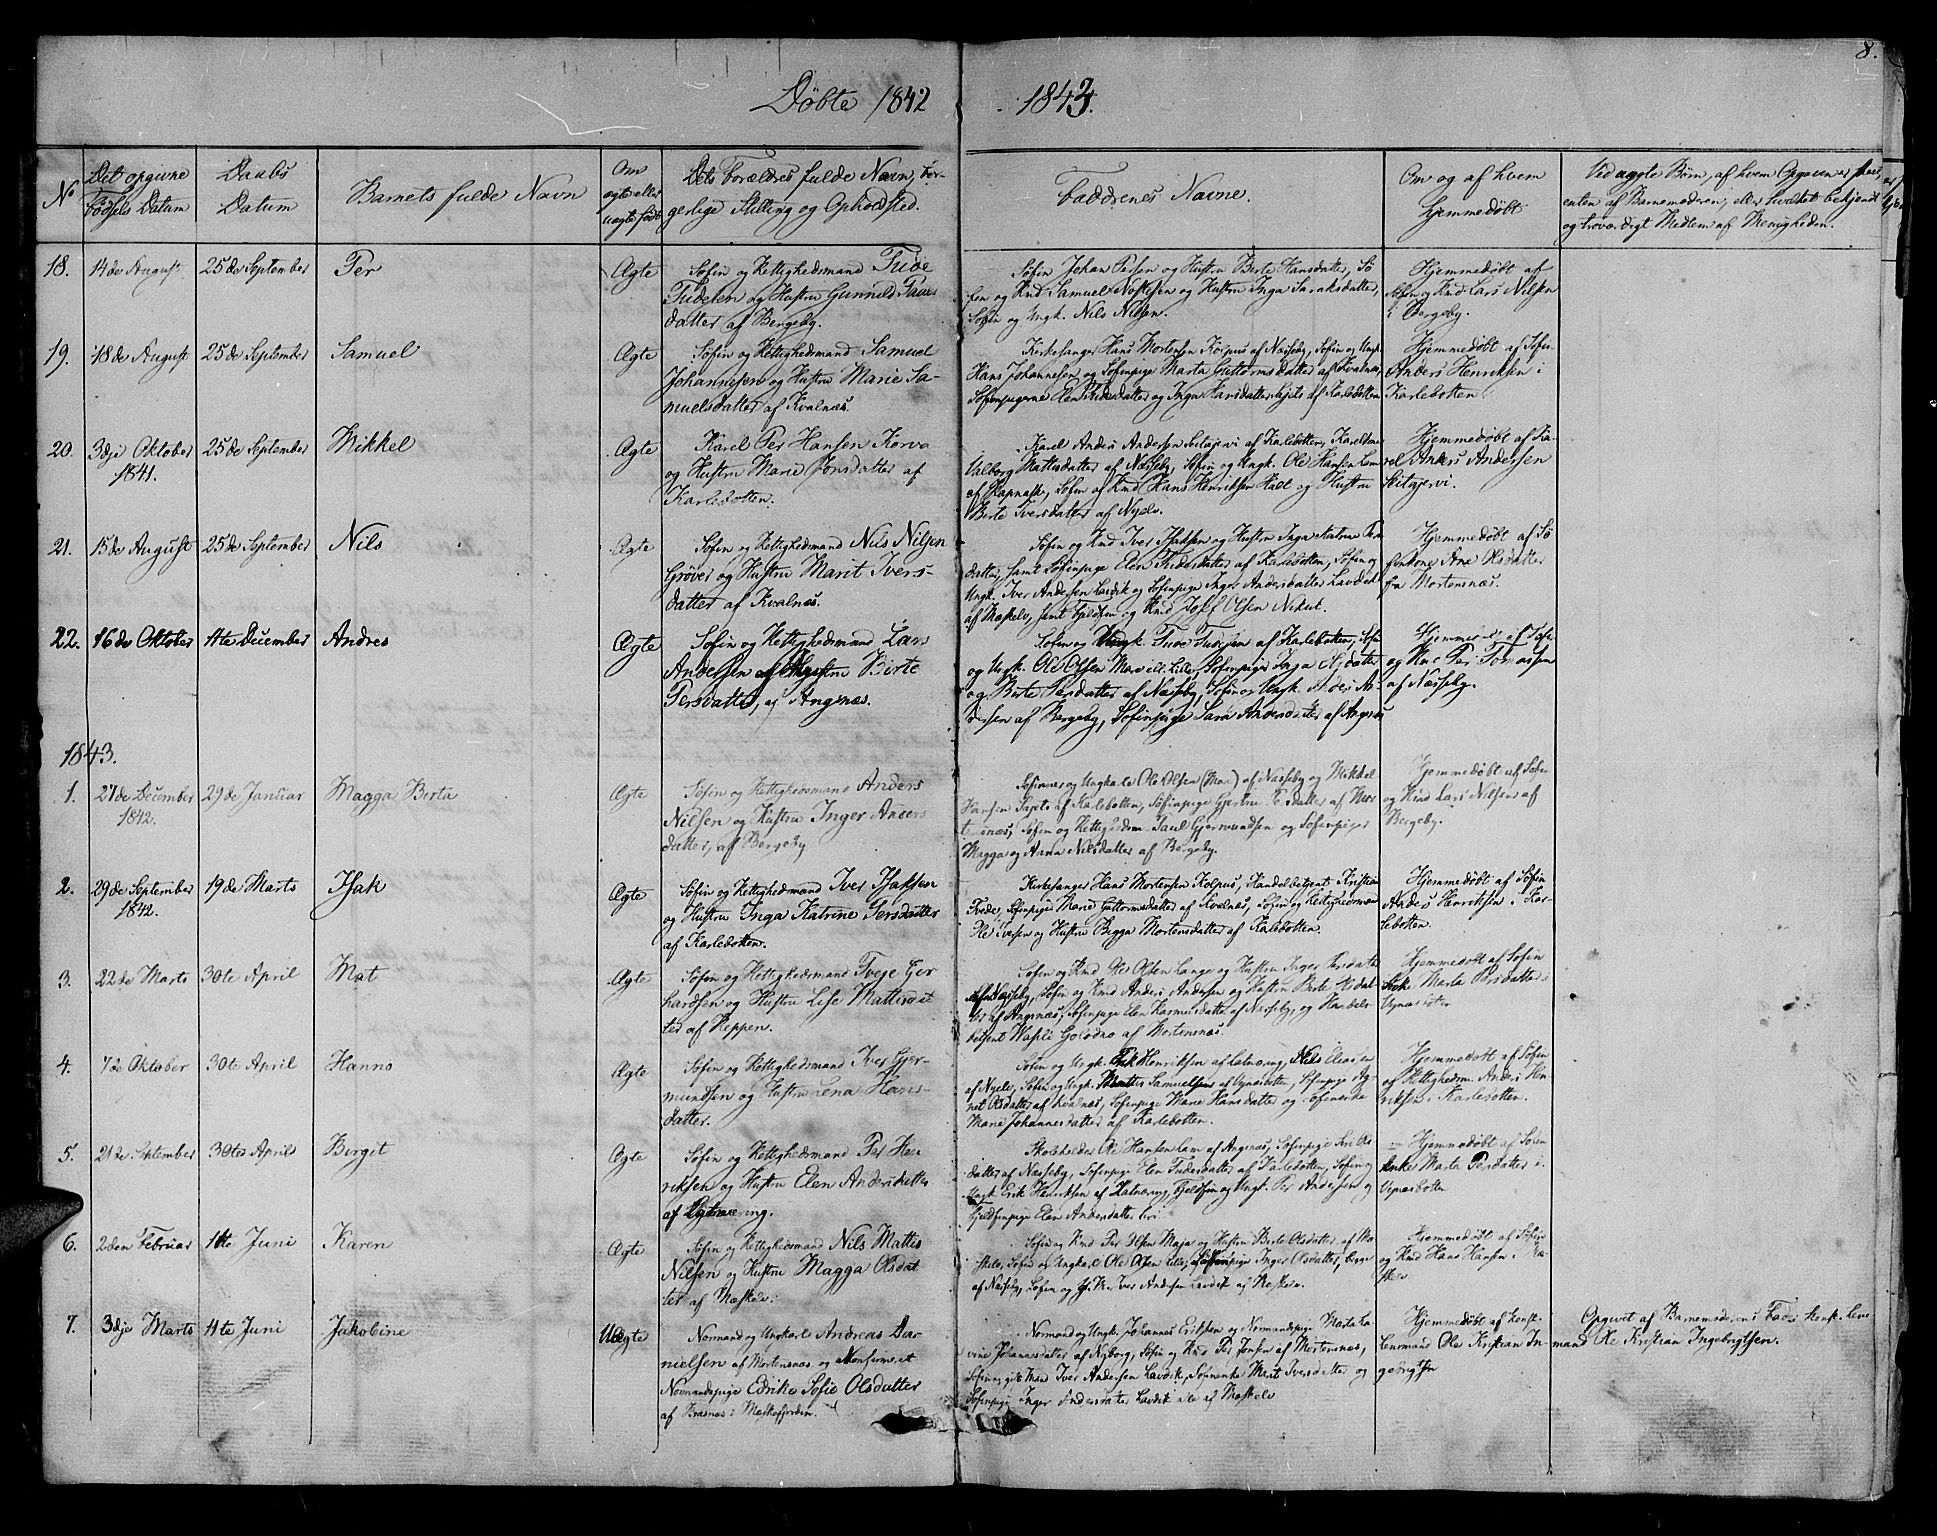 8.
Döbte 1842
1843.
No
Det opgivne
Födsels Datum
Daabs
Datum
Barnets fulde Navn
Om
ægte eller
uægte födt
Dets Forældres fulde Navn, bor-
gerlige Stilling og Opholdsted.
Faddrenes Navne.
Om og af hvem
hjemmedöbt
Ved uægte Börn, af hvem Opgaven er skeet,
enten af Barnemoderen, eller hvilket bekjendt
og troværdigt Medlem af Menigheden.
18. 14de August 25de September Per Ægte
Söfin og Rettighedsmand Tude
Tudesen og Hustru Gunnild Paas
datter af Bergeby.
Söfin Johan Persen og Hustru Berte Hansdatter, Sö
fin og Knd Samuel og Hustru Inga
Söfin og Ungk. Nils Nilsen.
Hjemmedöbt af
Söfin og Knd Lars Nilsen
i Bergeby.
19. 18de August 25de September Samuel Ægte
Söfin og Rettighedsmand Samuel
Johannesen og Hustru Marie Sa-
muelsdatter af Kvalnæs.
Kirkesanger Hans Mortensen Kolpus af Næsseby, Söfin og Ungk.
Hans Johannesen og Söfinpige Marta Guttormsdatter af Kvalnæs,
Söfinpigerne Elen Tudesdatter og Inga Hansdatter af Karlebotten
Hjemmedöbt af Söfin
Anders Henriksen i
Karlebotten.
20. 3die Oktober 25de September Mikkel Ægte
1841.
Karel Per Hansen Korva
og Hustru Marie Jonsdatter af
Karlebotten.
Karel Anders Andersen af Karlebotten,
Valborg Mattisdatter af Næsseby, Söfin og Ungk. Ole Hansen Lam
af Söfin af Knd Hans Henriksen Halt og Hustru
Berte Iversdatter af Nyelv.
Hjemmedöbt af Ka-
rel Anders Andersen
21. 15de August 25de September Nils Ægte
Söfin og Rettighedsmand Nils Nilsen
Gröver og Hustru Marit Ivers-
datter af Kvalnæs.
Söfin og Knd Iver Isaksen og Hustru Inga Katrine
datter, samt Söfinpige Elen Tudesdatter af Karlebotten, Söfin og
Ungk. Iver Andersen Lavdik og Söfinpige Inger Andersdatter Lavdik
af Mæskelv, samt Fjeldfin og Knd Josef Olsen Nikut.
Hjemmedöbt af Sö
finkone Ane Olsdatter
fra Mortensnæs.
22. 16de Oktober 11te December Andres Ægte
Söfin og Rettighedsmand Lars
Andersen og Hustru Birte
Persdatter, af Angsnæs.
Söfin og Ungk. Tude Tudesen af Karlebotten, Söfin
og Ungk. Ole Olsen Lille, Söfinpige Inga
og Berte Persdatter af Næsseby, Söfin og Ungk. Anders An-
dersen af Bergeby, Söfinpige Sara Andersdatter af Angsnæs
Hjemmedöbt af Söfin
og Knd Per Tomassen
af Næsseby.
1843.
1. 27de December 29de Januar Magga Birta Ægte
1842.
Söfin og Rettighedsmand Anders
Nilsen og Hustru Inger Anders
datter, af Bergeby
Söfinner og Ungkarle Ole Olsen (Mar) af Næsseby og Mikkel
Hansen af Karlebotten, Söfinpige Gjertru Persdatter af Mor
tensnæs, Söfin og Rettighedsm. Paul Gjermundsen og Söfinpiger
Magga og Anna Nilsdatter af Bergeby.
Hjemmedöbt af Söfin
og Knd Lars Nilsen af
Bergeby.
2. 29de September 19de Marts Isak Ægte
1842.
Söfin og Rettighedsmand Iver Isaksen
og Hustru Inga Katrine Persdatter
af Karlebotten.
Kirkesanger Hans Mortensen Kolpus, Handelsbetjent Kristian
Tvede, Söfinpige Marie Guttormsdatter af Kvalnæs, Söfin og Rettighedsmand
Ole Iversen og Hustru Bigga Mortensdatter af Karlebotten.
Hjemmedöbt af Söfin
Anders Henriksen i Kar
lebotten.
3. 22de Marts 30te April Mat Ægte
Söfin og Rettighedsmand Tvege Ger
hardsen og Hustru Lise Mattisdat
ter af Reppen.
Söfin og Knd Ole Olsen Lange og Hustru Inger Persdatter
af Næsseby, Söfin og Knd Anders Andersen og Hustru Birte
af Angsnæs, Söfinpige Elen Rasmusdatter af Næsseby, og Handels
betjent Wasili af Mortensnæs.
Hjemmedöbt af Söfin
Marta Persdatter i
4. 7de Oktober 30te April Hanno Ægte
Söfin og Rettighedsmand Iver Gjer-
mundsen og Hustru Lena Hans-
datter.
Söfin og Ungk. Erik Henriksen af Latnæring, Nils Eliasen
af Nyelv, Söfin og Ungk. Mattis Samuelsen af Söfinpige Ag-
net Olsdatter af Kvalnæs, Söfinpige Marie Hansdatter og
Marie Johannesdatter af Karlebotten.
Hjemmedöbt af Söfin
og Rettighedsm. Anders Hen-
riksen i Karlebotten.
5. 21de September 30te April Birgit Ægte
Söfin og Rettighedsmand Per Hen
riksen og Hustru Elen Andersdatter
af
Skoleholder Ole Hansen Lam af Angsnæs, Söfinpige Siri Ols
datter af Næsseby, Söfinpige Elen Tudesdatter af Karlebotten, Söfin og
Ungk. Erik Henriksen af Latnæring, Fjeldfin og Ungk. Per Andersen og
Fjeldfinpige Elen Andersdatter
Hjemmedöbt af Söfin
enke Marta Persdatter i
6. 2den Februar 11te Juni Karen Ægte
Söfin og Rettighedsmand Nils Mattis
Nilsen og Hustru Magga Olsdat
ter af Mæskelv.
Söfin og Knd Per Olsen Maja og Hustru Berte Olsdatter af Mæ-
skelv, Söfin og Ungkarl Ole Olsen Lille, Söfinpige Inger Olsdatter, begge
af Næsseby, Söfin og Iver Andersen Lavdik af Mæskelv.
Hjemmedöbt af Söfin
og Knd Hans Hansen i Mæ
skelv
7. 3die Marts 11te Juni Jakobine Uægte
Normand og Ungkarl Andreas Da-
nielsen af Mortensnæs og konfirmeret
Normandspige Edrika Sofie Olsdatter
af Brasnæs i Mæskefjorden.
Normand og Ungk. Johannes Eriksen og Normandspige Marta La-
vine Johannesdatter af Nyborg, Söfin og Knd Per Jonsen af Mortensnæs,
Söfin og gift Mand Iver Andersen Lavdik, Söfinenke Marit Iversdatter og
Söfinpige Inger Andersdatter Lavdik alle af Mæskelv
Hjemmedöbt af Konst.
Lensmand Ole Kristian In
gebrigtsen
Opgivet af Barnemoderens Fader Konst. Lens
mand Ole Kristian Ingebrigtsen.